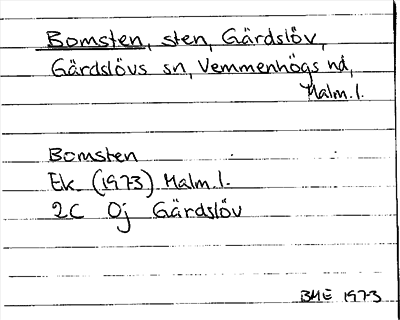 Bomsten, sten, Gärdslöv,
Gärdslövs sn, Vemmenhögs hd,
Malm. l.
Bomsten
Ek. (1973) Malm. l.
2C 0j Gärdslöv
BME 1973